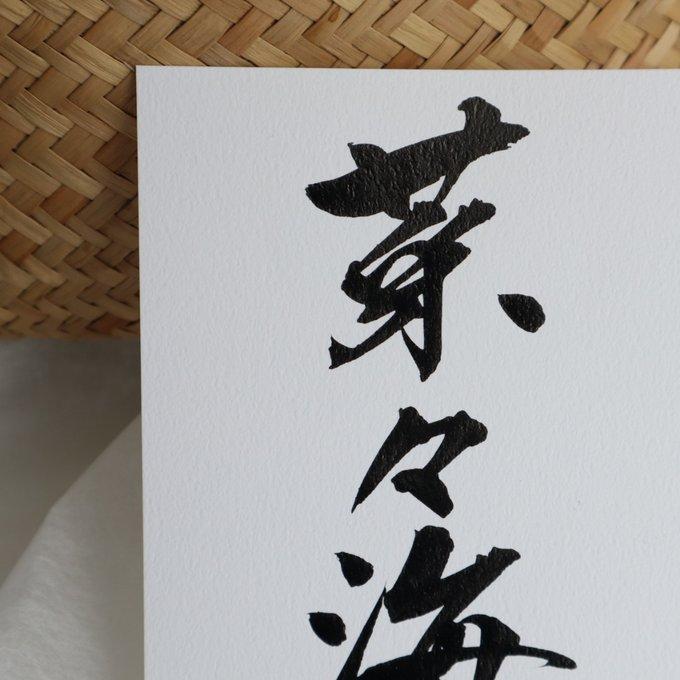 菜々海